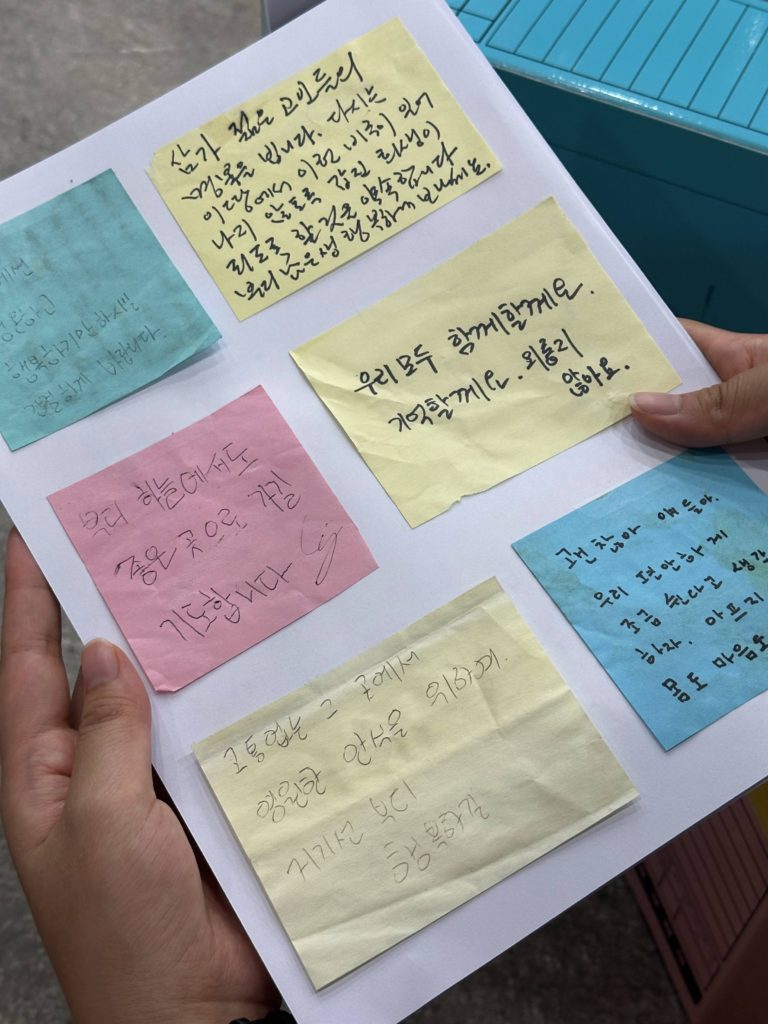 삼가 젊은 고인들의
명복을 빕니다. 다시는
이 땅에서 이런 비극이 일어
나지 않도록 값진 희생이
되도록 할 것을 약속합니다
부디 행복하게 보내세요.
행복하지 않아시길
바랍니다.
우리 모두 함께할께요.
기억할께요. 외롭지
않아요.
부디 하늘에서도
좋은 곳으로 가길
기도합니다
괜찮아 얘들아.
우리 편안하게
조금 쉰다고 생각
하자. 아프지
몸도 마음도
고통없는 그 곳에서
영원한 안식을 위하여.
거기서 부디
행복하길